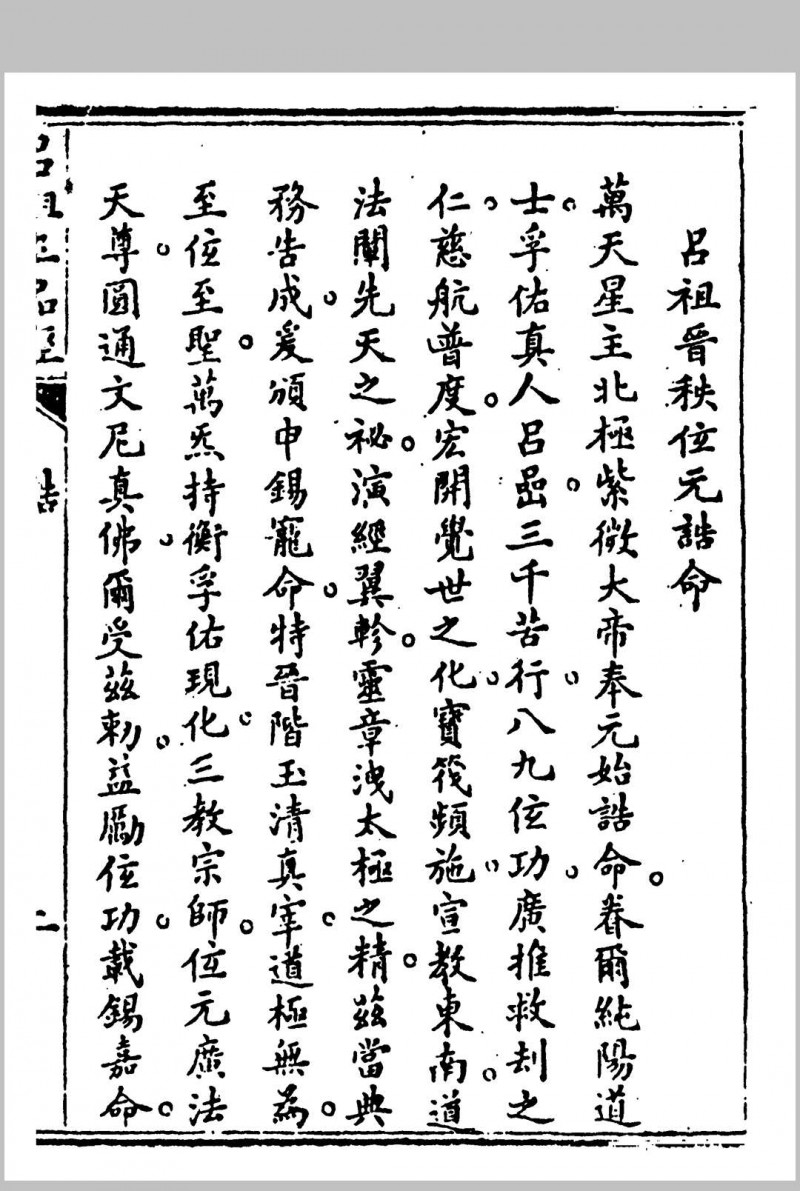 呂祖晉秩位元誥命
萬天星主北極紫微大帝奉元始誥命。眷爾純陽道
士。孚佑真人呂嵒。三千苦行。八九位功。廣推救刦之
仁。慈航普度。宏開覺世之化。寶筏頻施。宣教東南。道
法闡先天之祕。演經翼軫。靈章洩太極之精。茲當典
務告成。爰頒申錫寵命。特晉階玉清真宰。道極無為。
至位至聖。萬炁持衡。孚佑現化。三教宗師。位元廣法
天尊。圓通文尼真佛。爾受茲勅。益勵位功。載錫嘉命。
呂祖三品經
誥